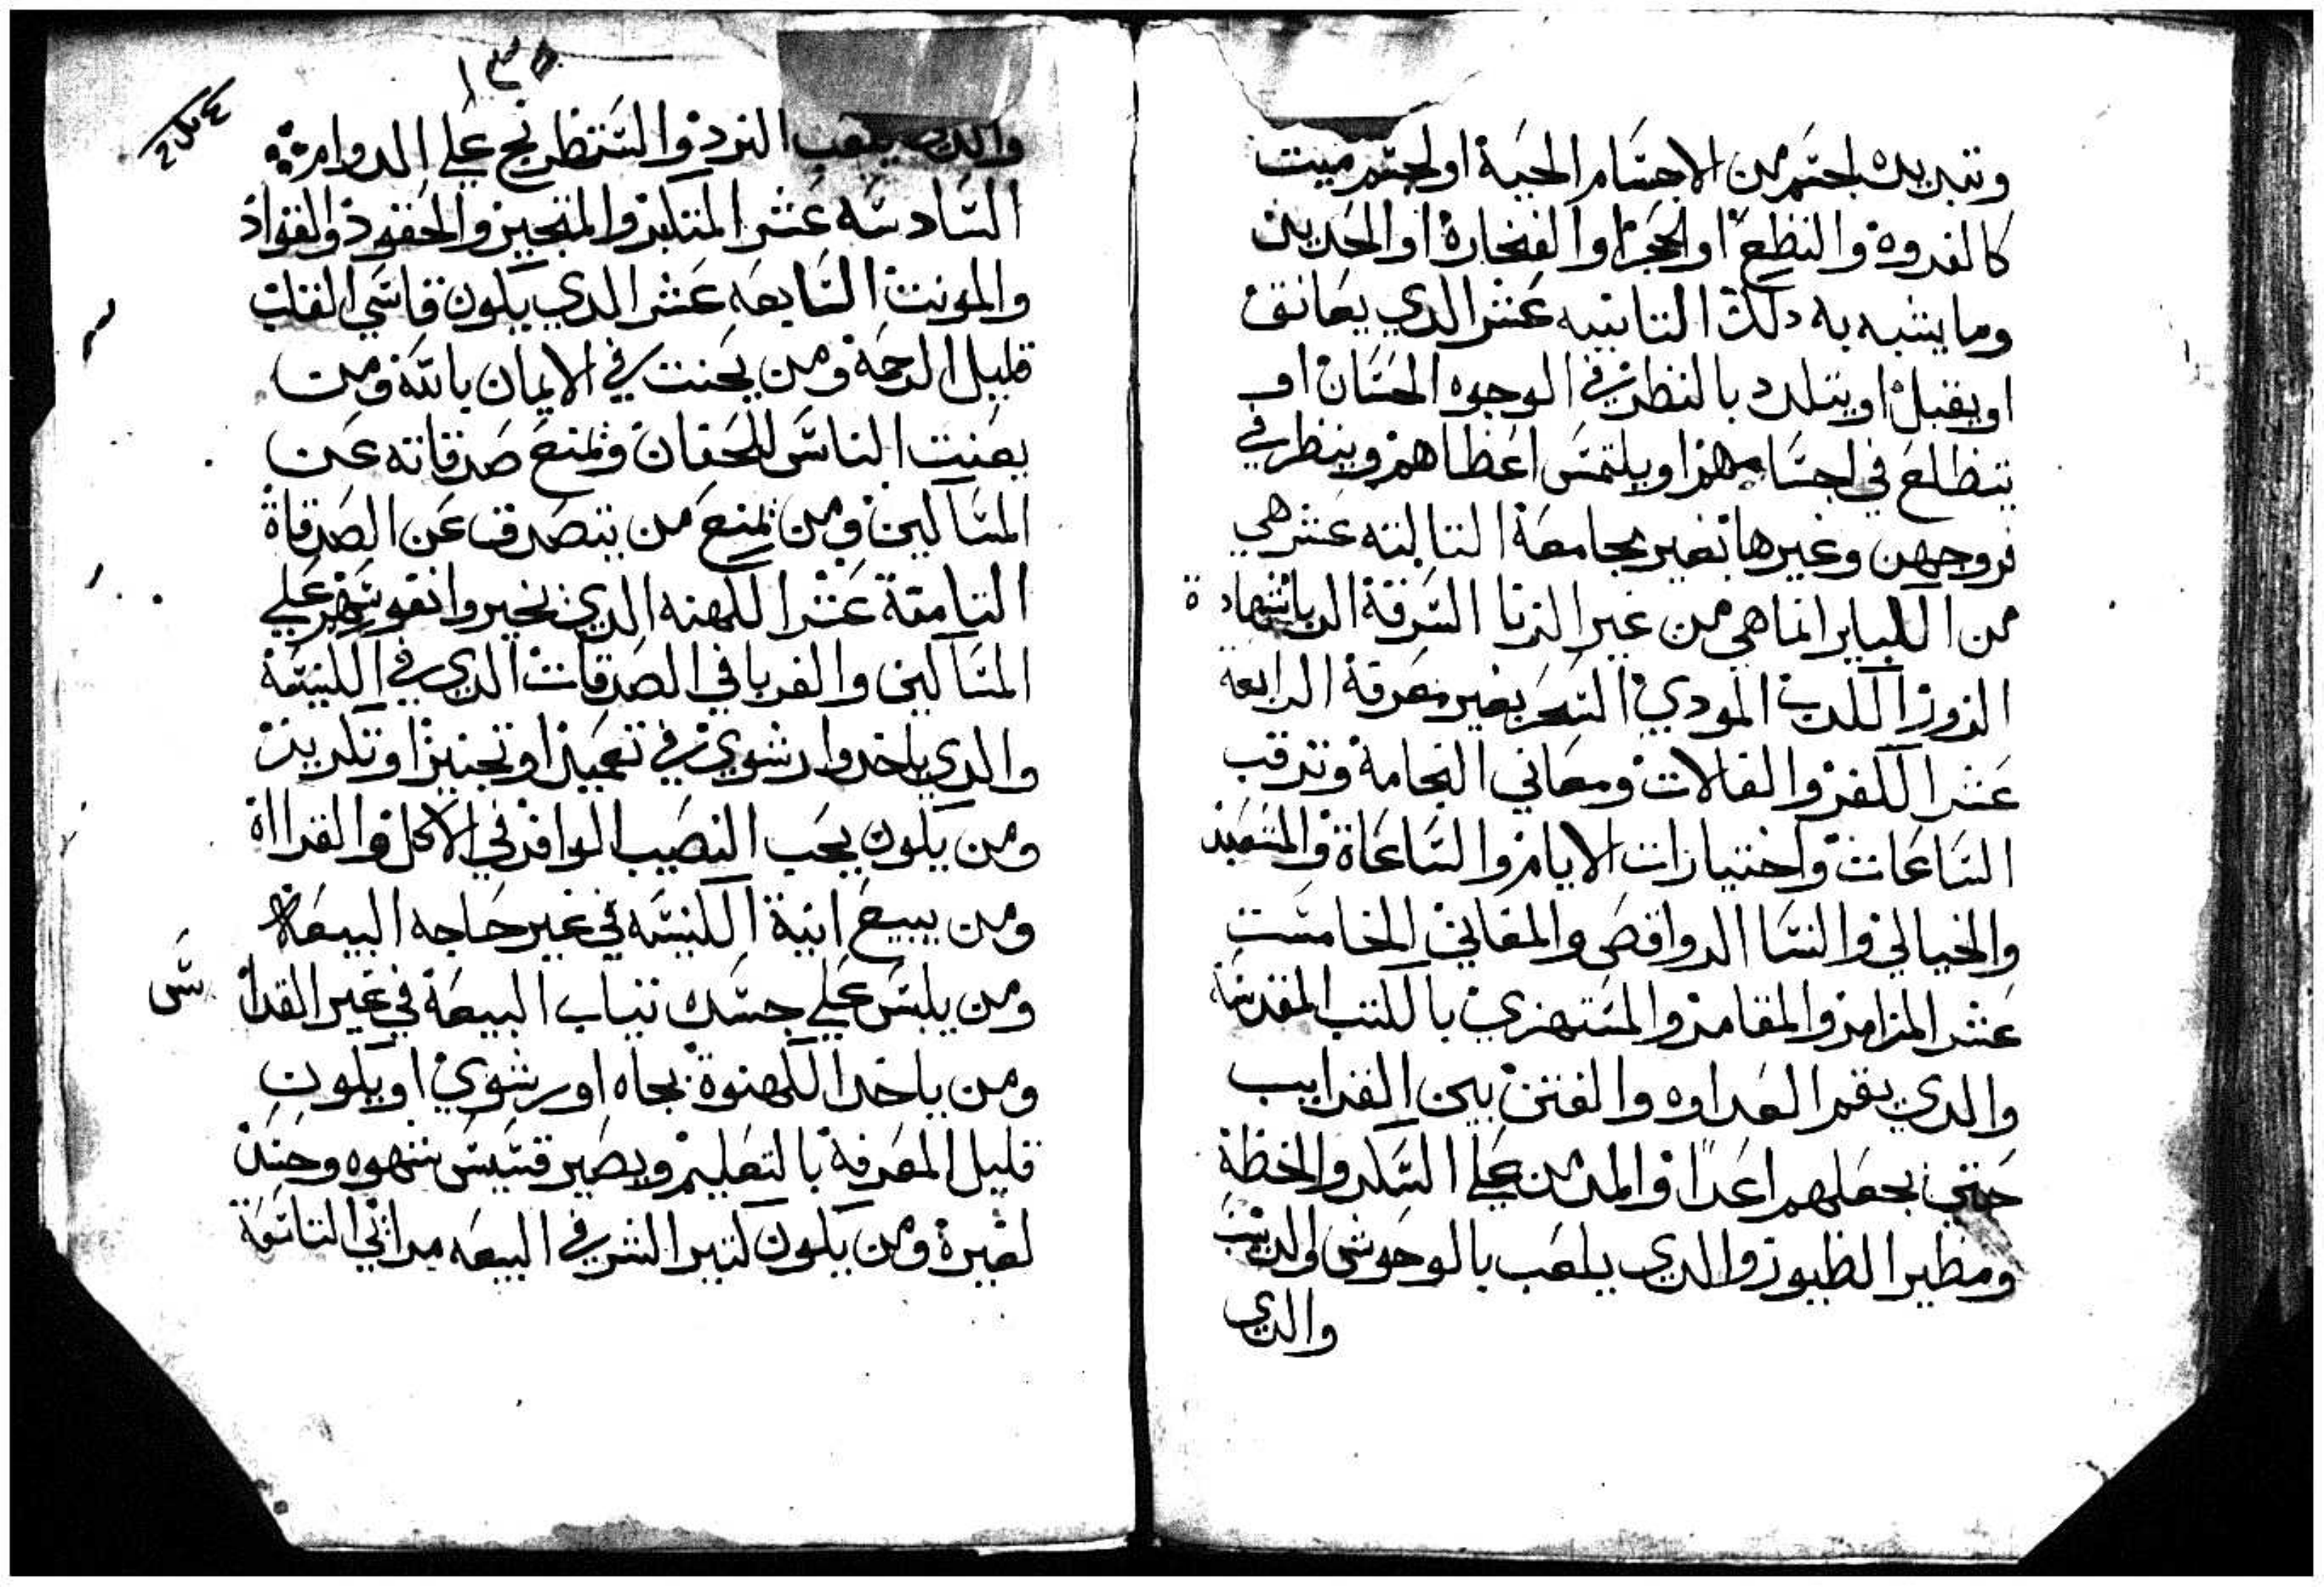 وتبديده لجسم من الاجسام الحية او لجسم ميت
كالفروة والنطع او الحجر او الفخارة او الحديد
وما يشبه به دلك التانيه عشر الدي يعانق
او يقبل او يتلدد بالنظر في الوجوه الحسان او
يتطلع في اجسامهم او يلتمس اعظاهم وينظر في
فروجهن وغيرها بغير مجامعة التالته عشر هي
من الكباير انما هي من غير الزنا السرقة الربا شهادة
الزور الكدب المودي السحر بغير معرفة الرابعة
عشر الكفر والفالات ومعاني النجامة وترقب
الساعات واختيارات الايام والساعاة والمشعبد
والخيالي والنسا الرواقص والمغاني الخامست
عشر المزامر والمقامر والمستهزي بالكتب المقدسة
والدي يقم العداوه والفتن بين القرايب
حتي يجعلهم اعدا والمدمن علي السكر والخطة
ومطير الطيور والدي يلعب بالوحوش والدبيب
والدي
١٣٥
والدي يلعب النرد والشطرنج علي الدوام
السادسه عشر المتكبر والمتجبر والحقود والقواد
والمونت السابعه عشر الدي يكون قاسي القلب
قليل الرحمة ومن يحنت في الايمان بالله ومن
يعنت الناس للحقان ويمنع صدقاته عن
المساكين ومن يمنع من يتصدق عن الصدقاة
التامنة عشر الكهنه الدين نحيروا نفوسهم علي
المساكين والغربا في الصدقات الدي في الكنيسة
والدي ياخدوا رشوي في تعميد او تجنيز او تكريز
ومن يكون يحب النصيب الوافر في الاكل والقرااة
ومن يبيع انية الكنيسه في غير حاجه البيعة
ومن يلبس علي جسده تياب البيعة في غير القداس
ومن ياخد الكهنوة بجاه او رشوي او يكون
قليل المعرفة بالتعليم ويصير قسيس شهوه وحسد
لغيرة ومن يكون كتير الشر في البيعه مراني التاسعة